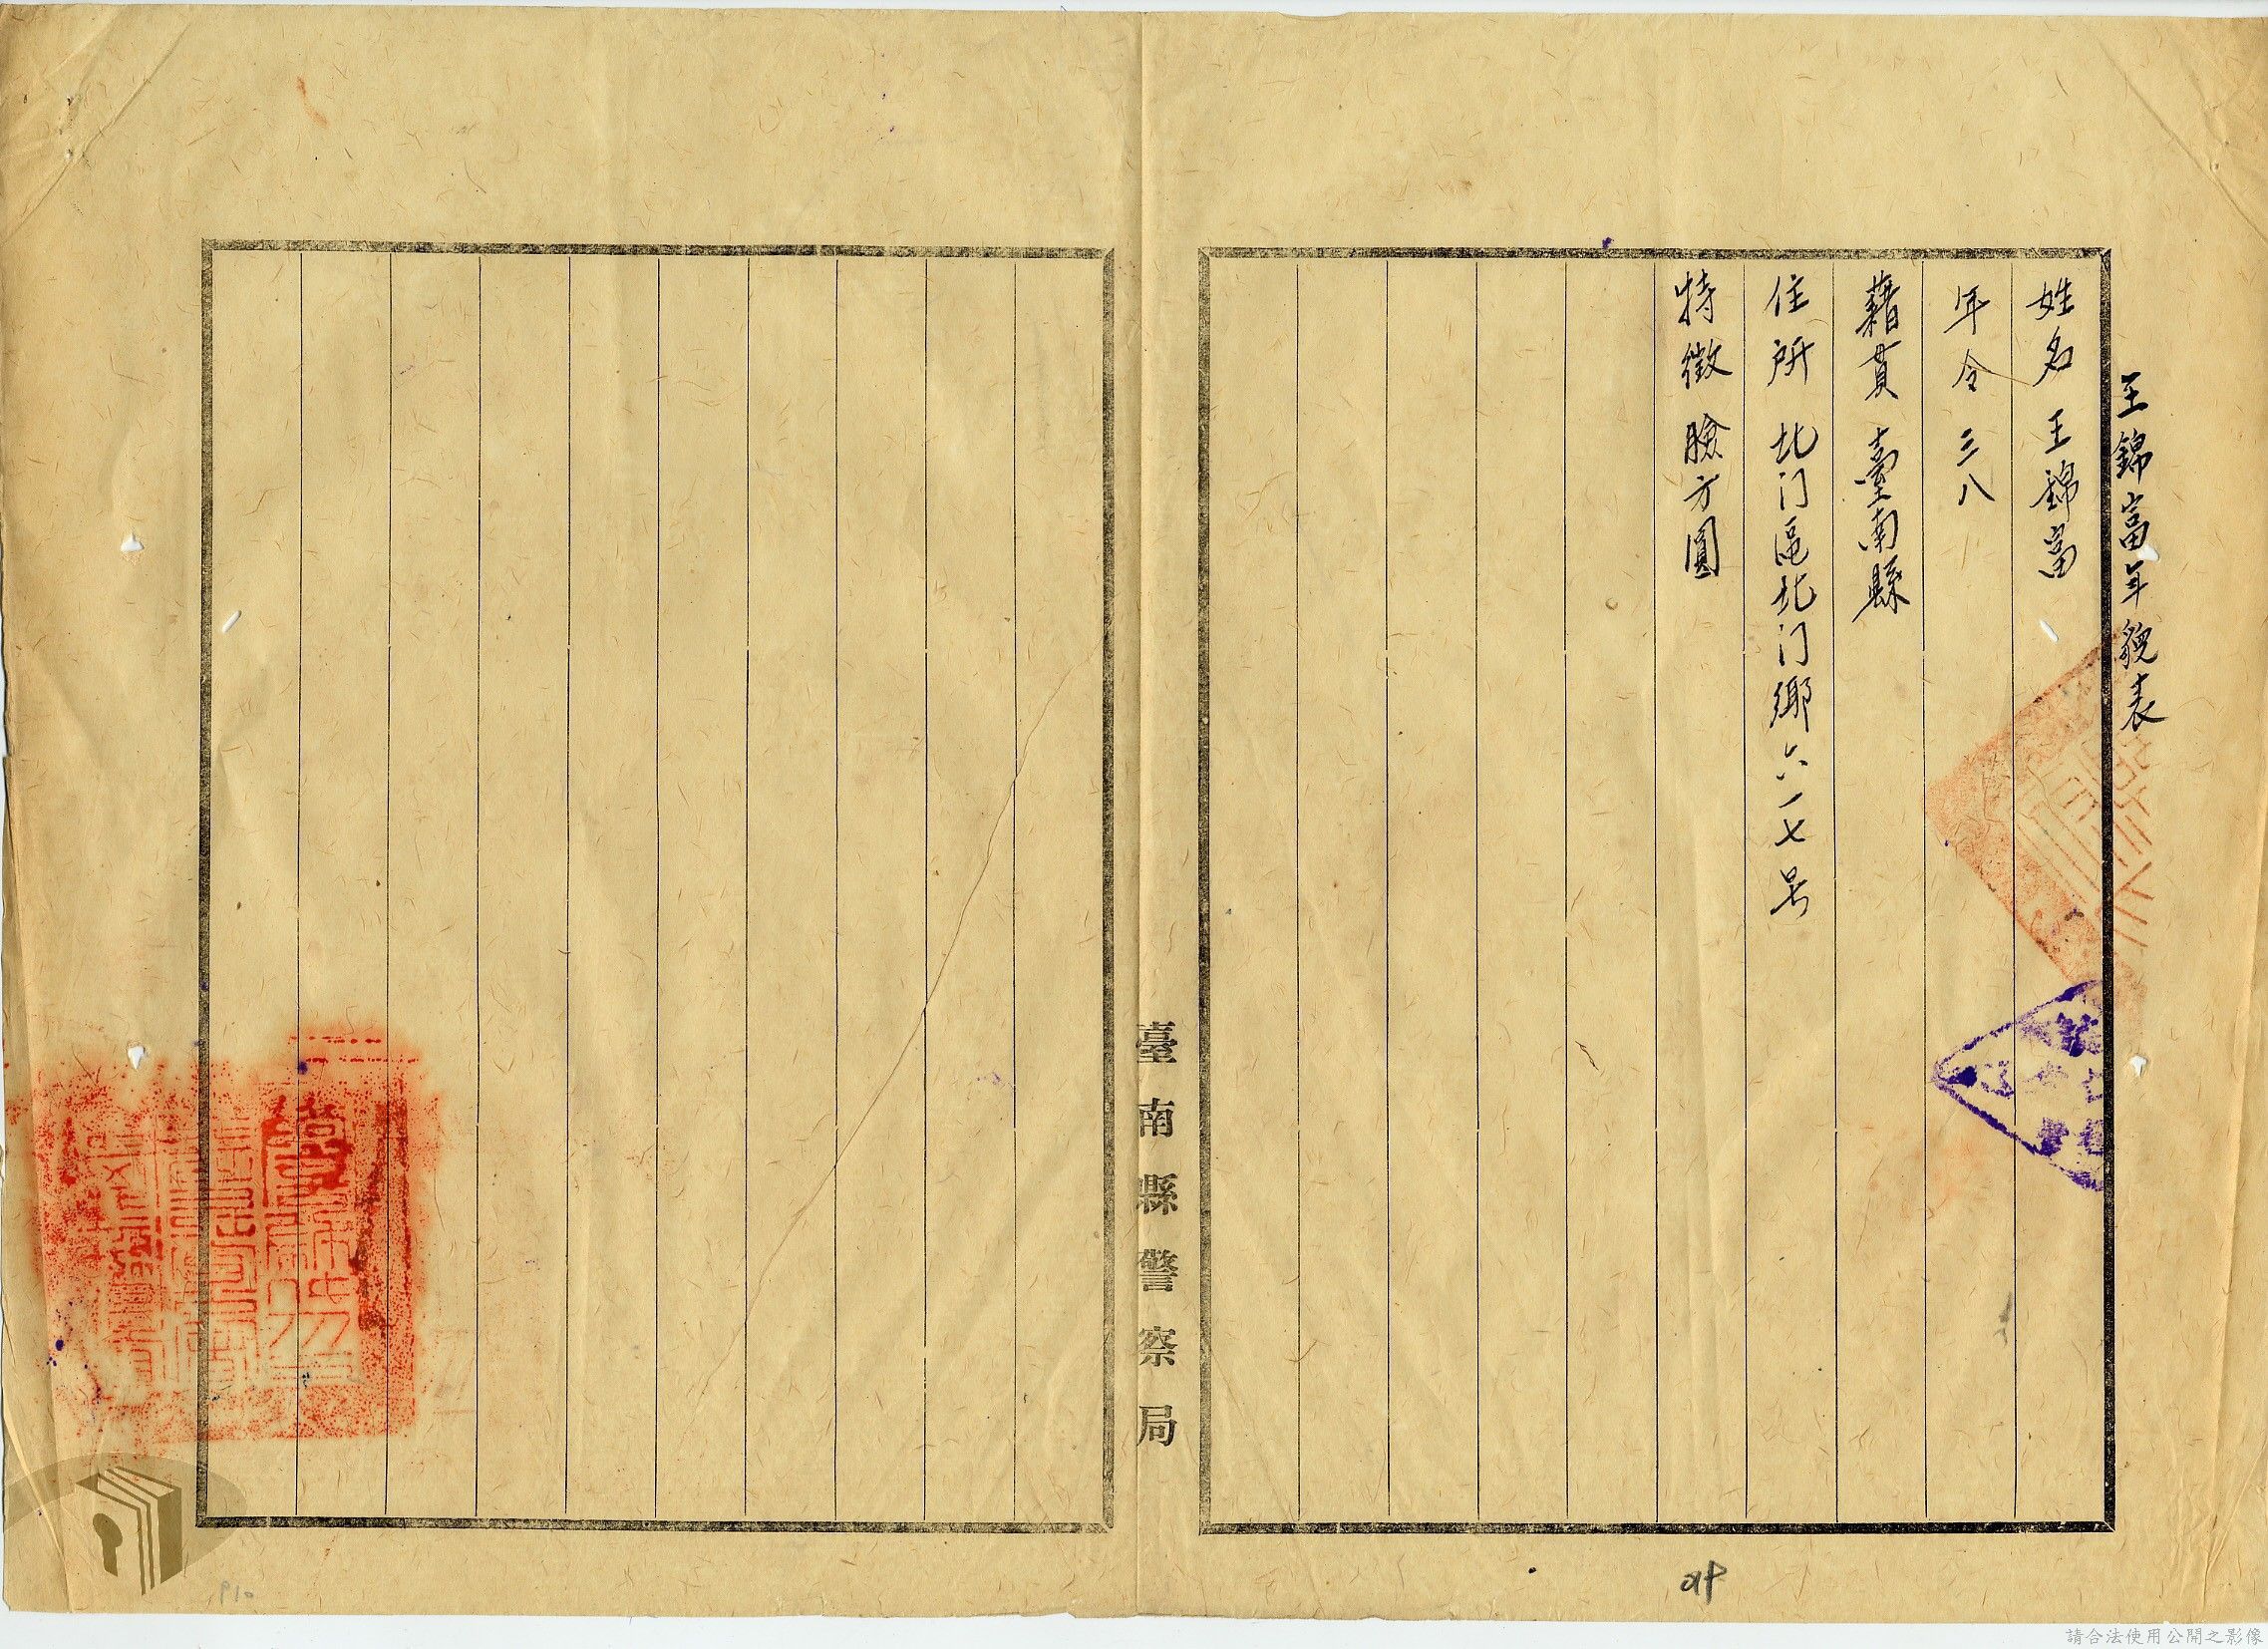 王錦富年貌表
姓名 王錦富
年令 三八
藉貫 臺南縣
住所 北门區北门鄉六一七号
特徵 臉方圓
臺南縣警察局
P10
請合法使用公開之影像